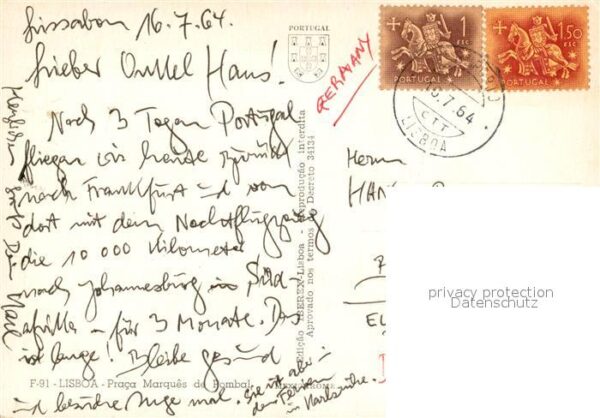 Lissabon 16.7.64.
Lieber Onkel Hans!
Nach 3 Tagen Portugal
fliegen wir heute zurück
nach Frankfurt und von
dort mit dem Nachtflugzeug
die 10 000 Kilometer
nach Johannesburg in Süd-
afrika – für 3 Monate. Das
ist lange! Bleibe gesund
und besuche Inge mal. Sie ist aber in
den Ferien
in Karlsruhe.
Herzliche Grüße Dein
PORTUGAL
GERMANY
1
ESC
PORTUGAL
1,50
ESC
PORTUGAL
16.7.64
CTT
LISBOA
Edição IBEREX-Lisboa - Reprodução interdita
Aprovado nos termos do Decreto 34134
F-91 - LISBOA - Praça Marquês de Pombal
Herrn
privacy protection
Datenschutz